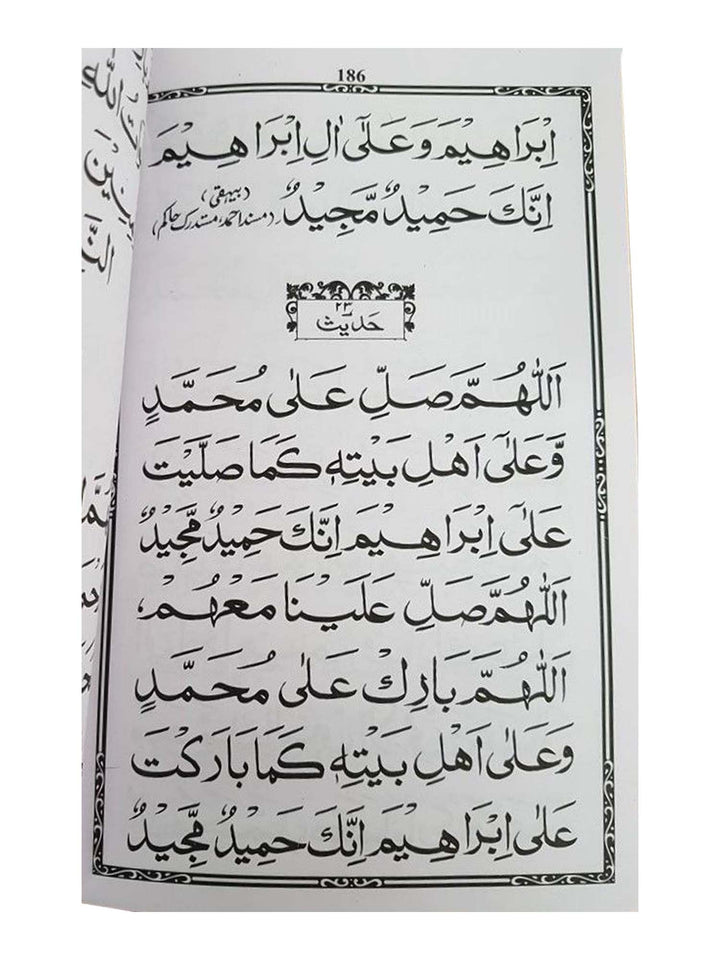 186
اِبْرَاهِيْمَ وَعَلٰٓى اٰلِ اِبْرَاهِيْمَ
اِنَّكَ حَمِيْدٌ مَّجِيْدٌ ۔ (بیہقی) (مسند احمد، مستدرک حاکم)
حدیث ۲۳
اَللّٰهُمَّ صَلِّ عَلٰى مُحَمَّدٍ
وَّعَلٰٓى اَهْلِ بَيْتِهٖ كَمَا صَلَّيْتَ
عَلٰٓى اِبْرَاهِيْمَ اِنَّكَ حَمِيْدٌ مَّجِيْدٌ
اَللّٰهُمَّ صَلِّ عَلَيْنَا مَعَهُمْ،
اَللّٰهُمَّ بَارِكْ عَلٰى مُحَمَّدٍ
وَعَلٰٓى اَهْلِ بَيْتِهٖ كَمَا بَارَكْتَ
عَلٰٓى اِبْرَاهِيْمَ اِنَّكَ حَمِيْدٌ مَّجِيْدٌ